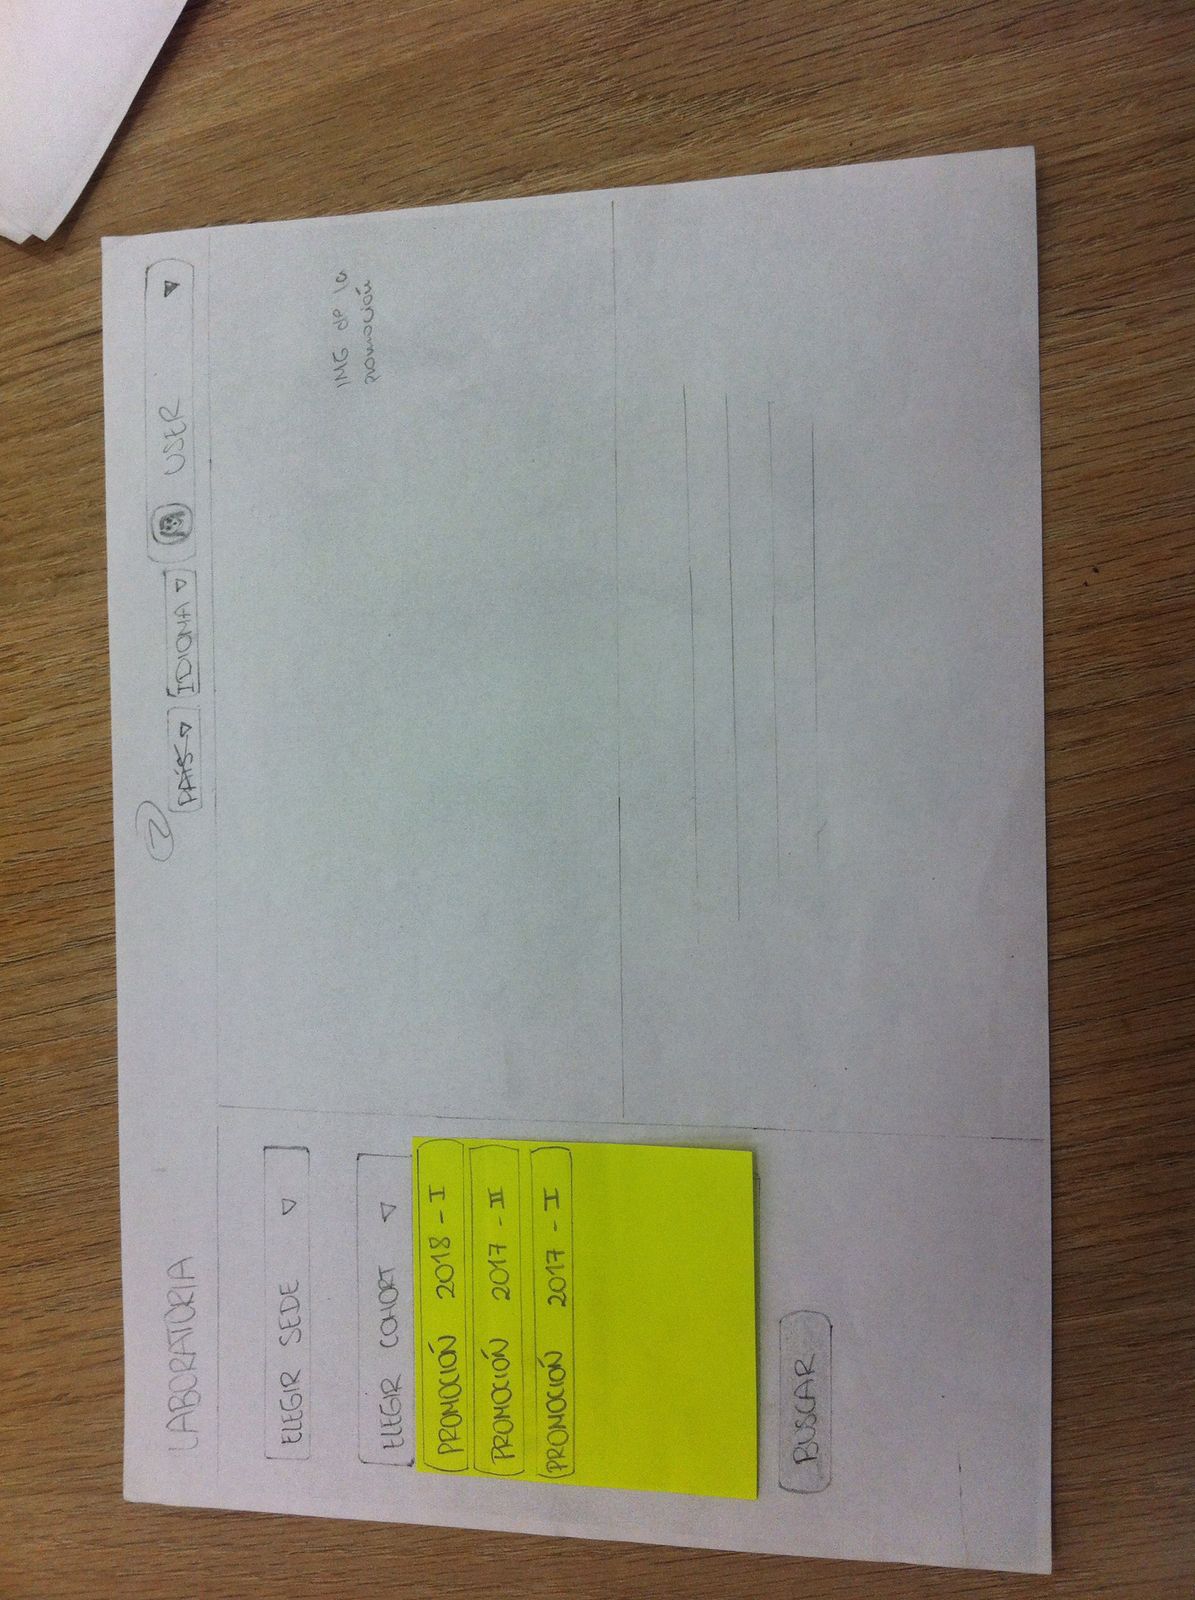 LABORATORIA
2
PAÍS
IDIOMA
USER
ELEGIR SEDE
ELEGIR COHORT
PROMOCIÓN 2018 - I
PROMOCIÓN 2017 - II
PROMOCIÓN 2017 - I
BUSCAR
IMG de la
promoción